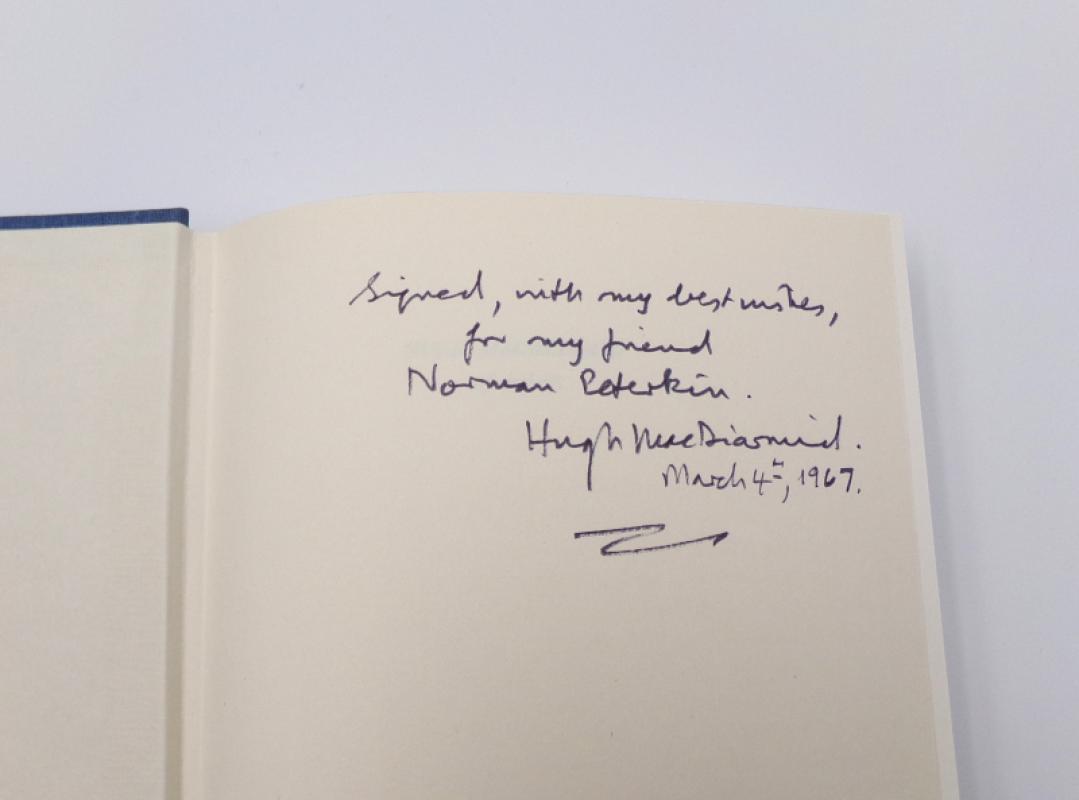 Signed, with my best wishes,
for my friend
Norman Peterkin.
Hugh MacDiarmid.
March 4th, 1967.